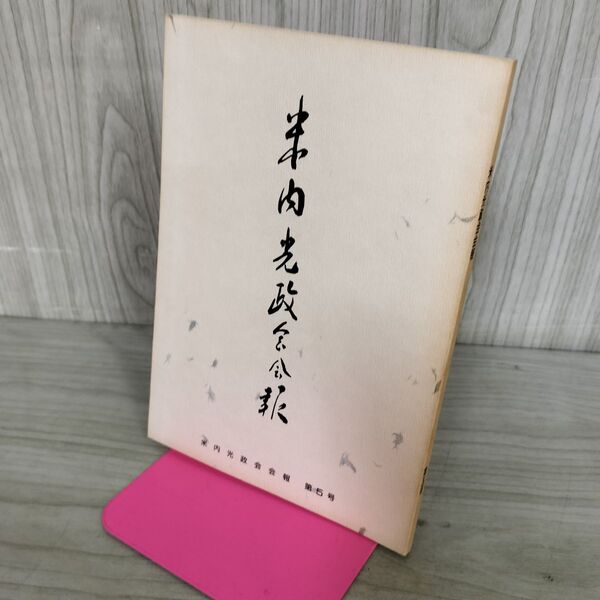 米内光政会会報
米内光政会会報 第5号